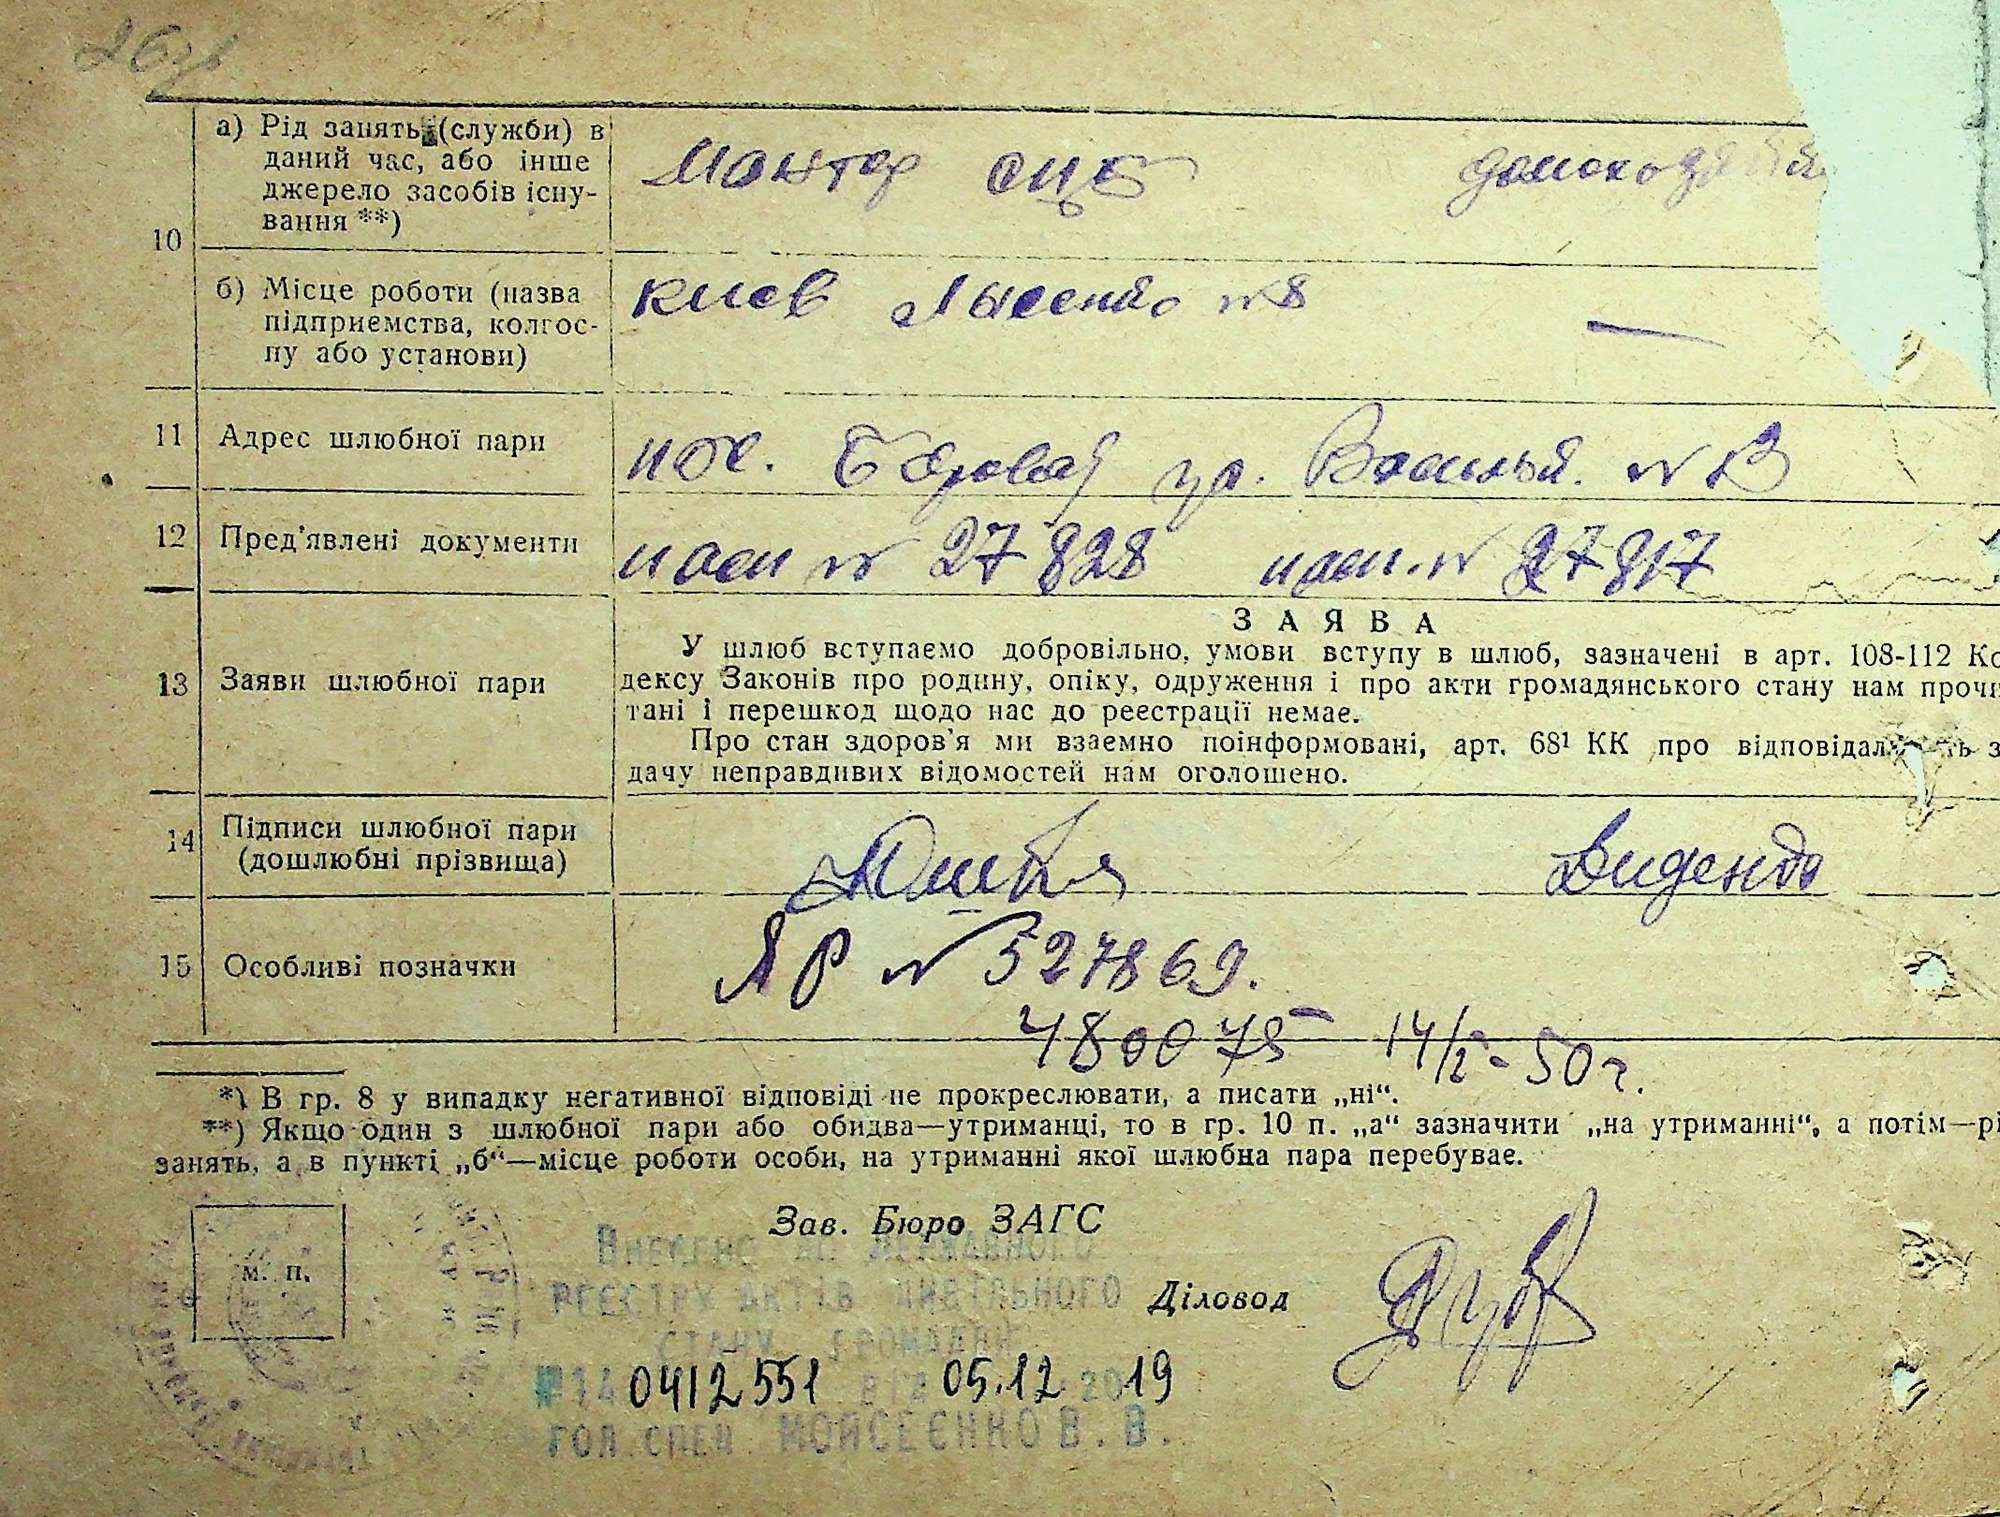 26
10
а) Рід занять (служби) в
даний час, або інше
джерело засобів існу-
вання **)
Монтер СЦБ
домохозяйка
б) Місце роботи (назва
підприємства, колгос-
пу або установи)
Киев Лысенко №8
—
11 Адрес шлюбної пари
пос. Боровая ул. №
12 Пред'явлені документи
пасп № 27828 пасп. № 27817
13 Заяви шлюбної пари
ЗАЯВА
У шлюб вступаємо добровільно, умови вступу в шлюб, зазначені в арт. 108-112 Ко
дексу Законів про родину, опіку, одруження і про акти громадянського стану нам прочи
тані і перешкод щодо нас до реєстрації немає.
Про стан здоров'я ми взаємно поінформовані, арт. 68¹ КК про відповідальність з
дачу неправдивих відомостей нам оголошено.
14 Підписи шлюбної пари
(дошлюбні прізвища)
15 Особливі позначки
ЯР № 527869.
480075 – 14/I - 50 г.
*) В гр. 8 у випадку негативної відповіді не прокреслювати, а писати „ні“.
**) Якщо один з шлюбної пари або обидва—утриманці, то в гр. 10 п. „а“ зазначити „на утриманні“, а потім—рі
занять, а в пункті „б“—місце роботи особи, на утриманні якої шлюбна пара перебуває.
Зав. Бюро ЗАГС
м. п.
Внесено до Державного
реєстру актів цивільного
стану громадян
Діловод
0412551 05.12 2019
гол. спец. Мойсеєнко В. В.